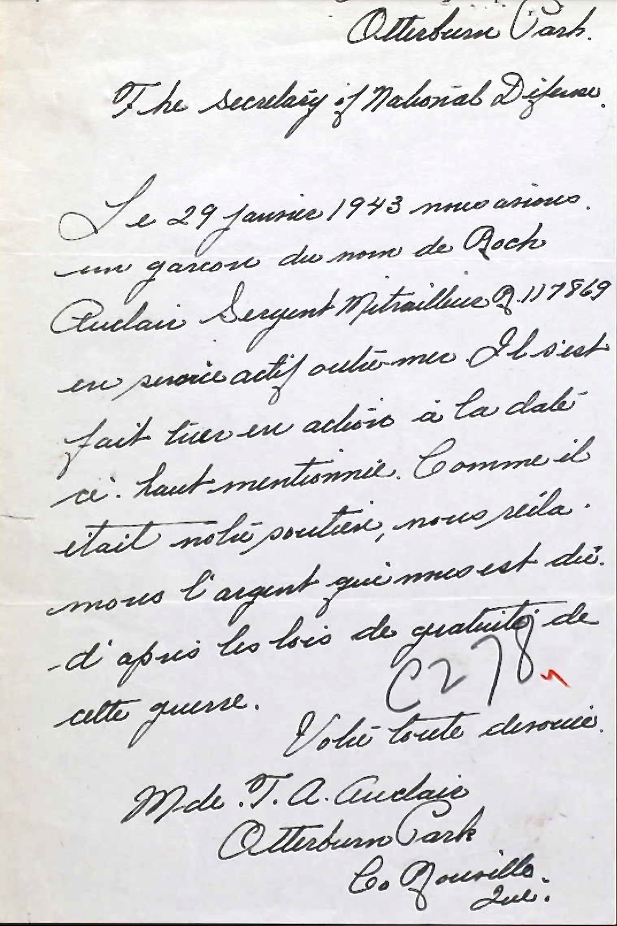 Otterburn Park.
The Secretary of National Defense.
Le 29 janvier 1943 nous avions.
un garcon du nom de Roch
Auclair Sergent Mitrailleur R 117869
en service actif outre-mer. Il s'est
fait tuer en action à la date
ci-haut mentionnée. Comme il
était notre soutien, nous récla-
mons l'argent qui nous est dû.
d'après les lois de gratuité de
cette guerre.
C278
Votre toute dévouée.
Mde. T. A. Auclair
Otterburn Park
Co Rouville
Que.